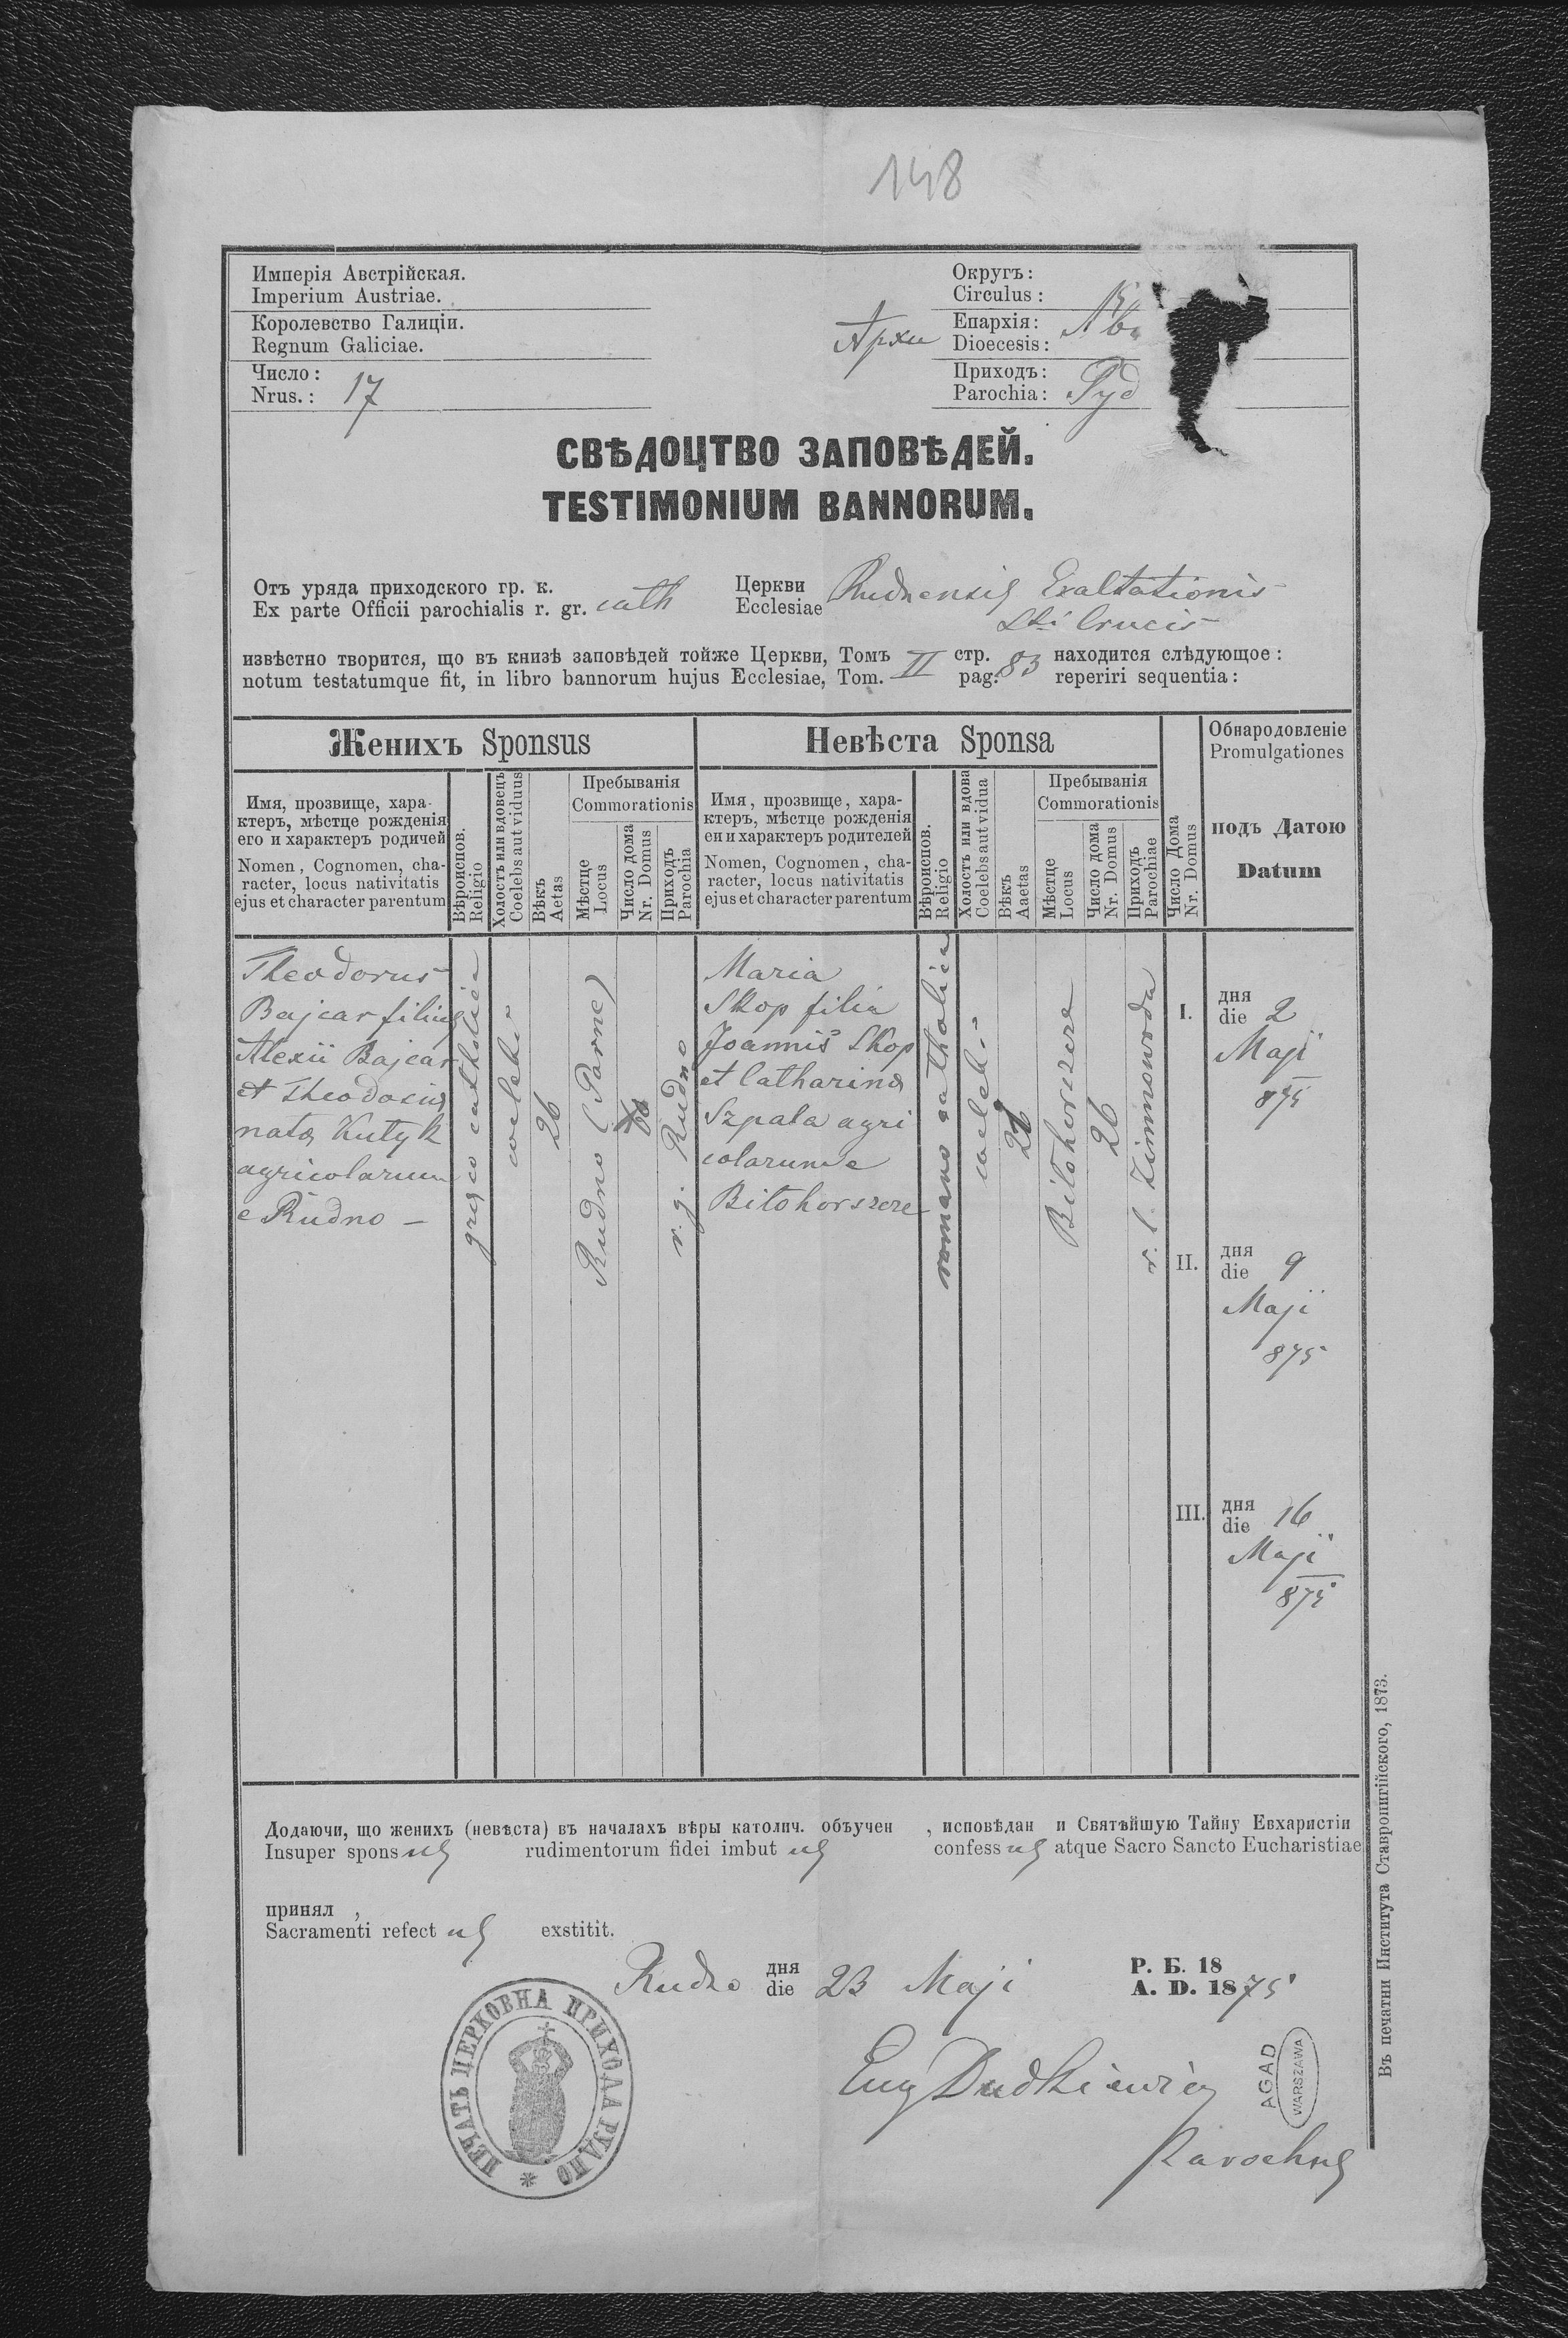 148
Имперія Австрійская.
Imperium Austriae.
Королевство Галиціи.
Regnum Galiciae.
Число:
Nrus.: 17
Округъ:
Circulus:
Архи Епархія:
Dioecesis:
Приходъ:
Parochia: Руд
СВѢДОЦТВО ЗАПОВѢДЕЙ.
TESTIMONIUM BANNORUM.
Отъ уряда приходского гр. к. Церкви
Ex parte Officii parochialis r. gr. cath Ecclesiae Rudnensis Exaltationis
Sti Crucis
извѣстно творится, що въ книзѣ заповѣдей тойже Церкви, Томъ II стр. 83 находится слѣдующое:
notum testatumque fit, in libro bannorum hujus Ecclesiae, Tom. pag. reperiri sequentia:
Женихъ Sponsus
Имя, прозвище, хара-
ктеръ, мѣстце рожденія
его и характеръ родичей
Nomen, Cognomen, cha-
racter, locus nativitatis
ejus et character parentum
Вѣроиспов.
Religio
Холостъ или вдовецъ
Coelebs aut viduus
Вѣкъ
Aetas
Пребыванія
Commorationis
Мѣстце
Locus
Число дома
Nr. Domus
Приходъ
Parochia
Невѣста Sponsa
Имя, прозвище, хара-
ктеръ, мѣстце рожденія
еи и характеръ родителей
Nomen, Cognomen, cha-
racter, locus nativitatis
ejus et character parentum
Вѣроиспов.
Religio
Холостъ или вдова
Coelebs aut vidua
Вѣкъ
Aaetas
Пребыванія
Commorationis
Мѣстце
Locus
Число дома
Nr. Domus
Приходъ
Parochiae
Число Дома
Nr. Domus
Обнародовленіе
Promulgationes
подъ Датою
Datum
Theodorus
Bajcar filius
Alexii Bajcar
et Theodosiae
natae Kutyk
agricolarum
e Rudno –
greco catholica
coelebs
26
Rudno (Parne)
r. g. Rudno
Maria
Skop filia
Joannis Skop
et Catharinae
Szpala agri
colarum e
Bilohorszcze
romano catholica
coelebs
Bilohorszcze
26
r. l. Zimnowoda
I. дня
die 2
Maji
875
II. дня
die 9
Maji
875
III. дня
die 16
Maji
875
Додаючи, що женихъ (невѣста) въ началахъ вѣры католич. объучен , исповѣдан и Святѣйшую Тайну Евхаристіи
Insuper sponsus rudimentorum fidei imbutus confessus atque Sacro Sancto Eucharistiae
принял ,
Sacramenti refectus exstitit.
Rudno дня
die 23 Maji Р. Б. 18
A. D. 1875
Eug Dudkiewicz
Parochus
ПЕЧАТЬ ЦЕРКОВНА ПРИХОДА РУДНО
AGAD
WARSZAWA
Въ печатни Института Ставропигійского, 1873.